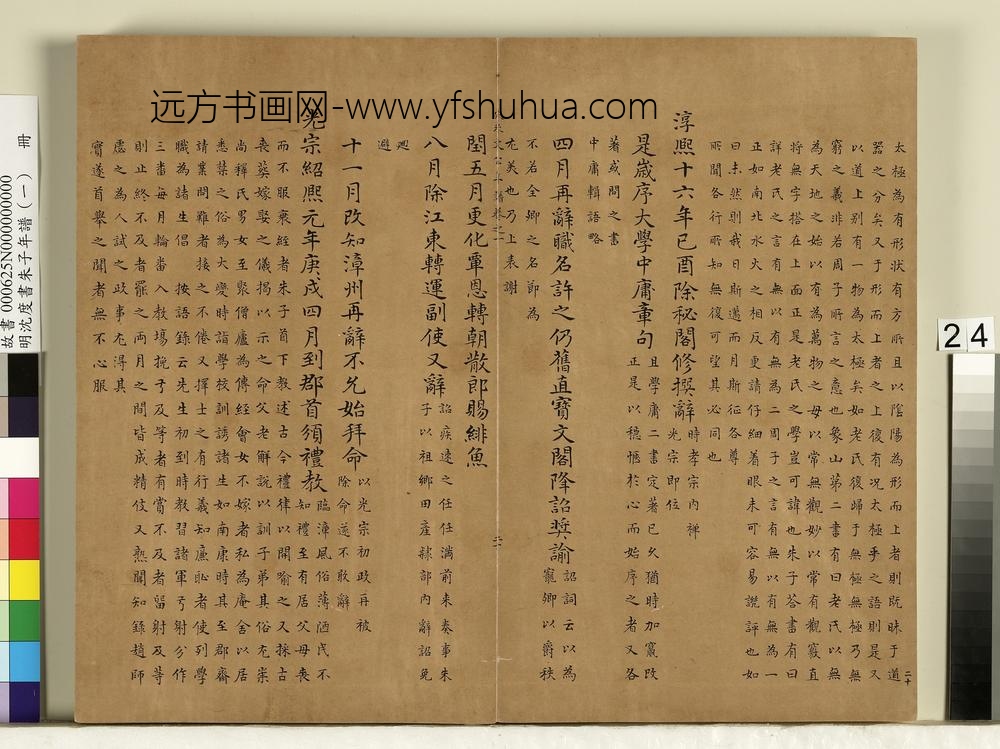 远方书画网-www.yfshuhua.com
太極為有形狀有方所且以陰陽為形而上者則既昧于道
器之分矣又于形而上者之上復有况太極乎之語則是又
以道上別有一物為太極矣如老氏復歸于無極無極乃無
窮之義非若周子所言之意也象山第二書有曰老氏以無
為天地之始以有為萬物之母以常無觀妙以常有觀竅直
將無字搭在上面正是老氏之學豈可諱也朱子荅書有曰
詳老氏之言有無以有無為二周子之言有無以有無為一
正如南北水火之相反更請仔細着眼未可容易譏評也如
曰未然則我日斯邁而月斯征各尊
所聞各行所知無復可望其必同也
淳熙十六年己酉除秘閣修撰辭
時孝宗內禪
光宗即位
是歲序大學中庸章句
且學庸二書定著已久猶時加竄改
正是以穩愜於心而始序之者又各
著或問之書
中庸輯語略
四月再辭職名許之仍舊直寶文閣降詔奬諭
詔詞云以為
寵卿以爵秩
不若全卿之名節為
尤美也乃上表謝
閏五月更化覃恩轉朝散郎賜緋魚
八月除江東轉運副使又辭
詔疾速之任任滿前來奏事朱
子以祖鄉田產隸部內辭詔免
迴
避
十一月改知漳州再辭不允始拜命
以光宗初政再被
除命遂不敢辭
光宗紹熙元年庚戌四月到郡首須禮教
臨漳風俗薄陋民不
知禮至有居父母喪
而不服衰絰者朱子首下教述古今禮律以開喻之又採古
喪葬嫁娶之儀揭以示之命父老解說以訓子弟其俗尤崇
尚釋氏男女至聚僧廬為傳經會女不嫁者私為庵舍以居
悉禁之俗為大變時詣學校訓誘諸生如南康時其至郡齋
請業問難者接之不倦又擇士之有行義知廉恥者使列學
職為諸生倡 按語錄云先生初到時教習諸軍弓射分作
三番每月輪番入教場挽弓及等者有賞不及者留射及等
則止終不及者罷之兩月之間皆成精伎又熟聞知錄趙師
慮之為人試之政事尤得其
實遂首舉之聞者無不心服
二十
24
故書 000625N000000000
明沈度書朱子年譜(一) 冊